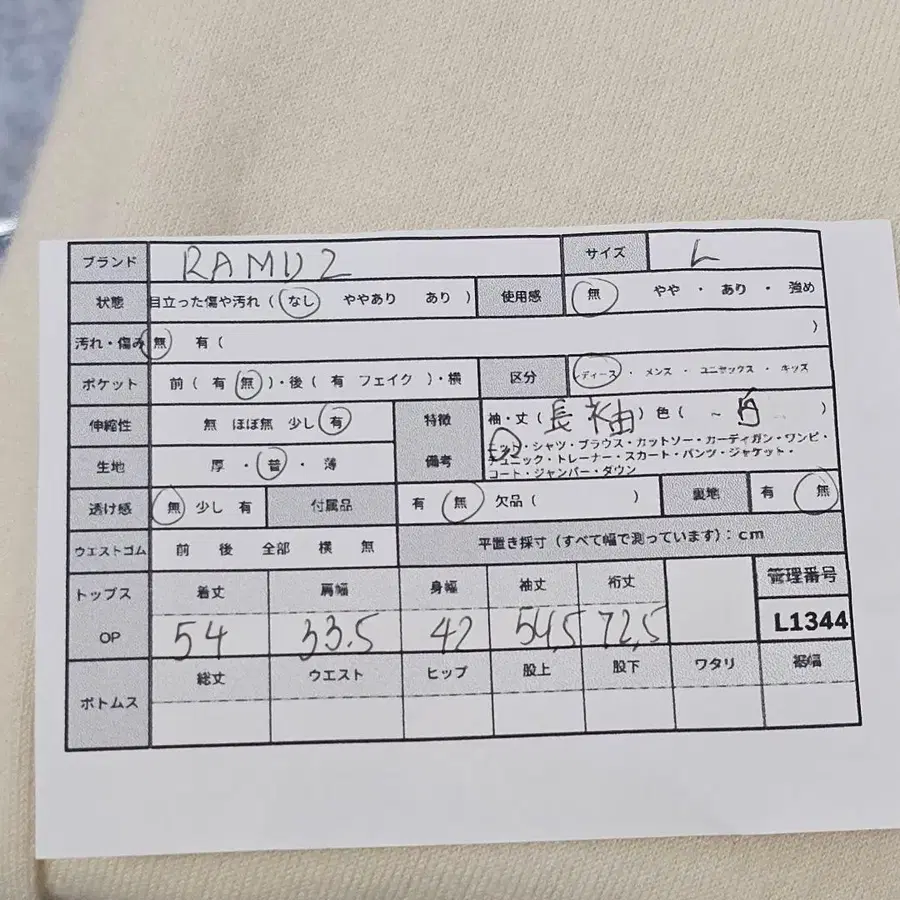 ブランド RAMUZ サイズ L
状態 目立った傷や汚れ ( なし ややあり あり ) 使用感 無 やや ・ あり ・ 強め
汚れ・傷み 無 有 ( )
ポケット 前 ( 有 無 )・後 ( 有 フェイク )・横 区分 ディース ・ メンズ ・ ユニセックス ・ キッズ
伸縮性 無 ほぼ無 少し 有 特徴 袖・丈 ( 長袖 ) 色 ( ~ 白 )
生地 厚 ・ 普 ・ 薄 備考 ニット・シャツ・ブラウス・カットソー・カーディガン・ワンピ・
チュニック・トレーナー・スカート・パンツ・ジャケット・
コート・ジャンパー・ダウン
透け感 無 少し 有 付属品 有 無 欠品 ( ) 裏地 有 無
ウエストゴム 前 後 全部 横 無 平置き採寸 (すべて幅で測っています) : cm
トップス 着丈 肩幅 身幅 袖丈 裄丈 管理番号
OP 54 33.5 42 54,5 72,5 L1344
ボトムス 総丈 ウエスト ヒップ 股上 股下 ワタリ 裾幅